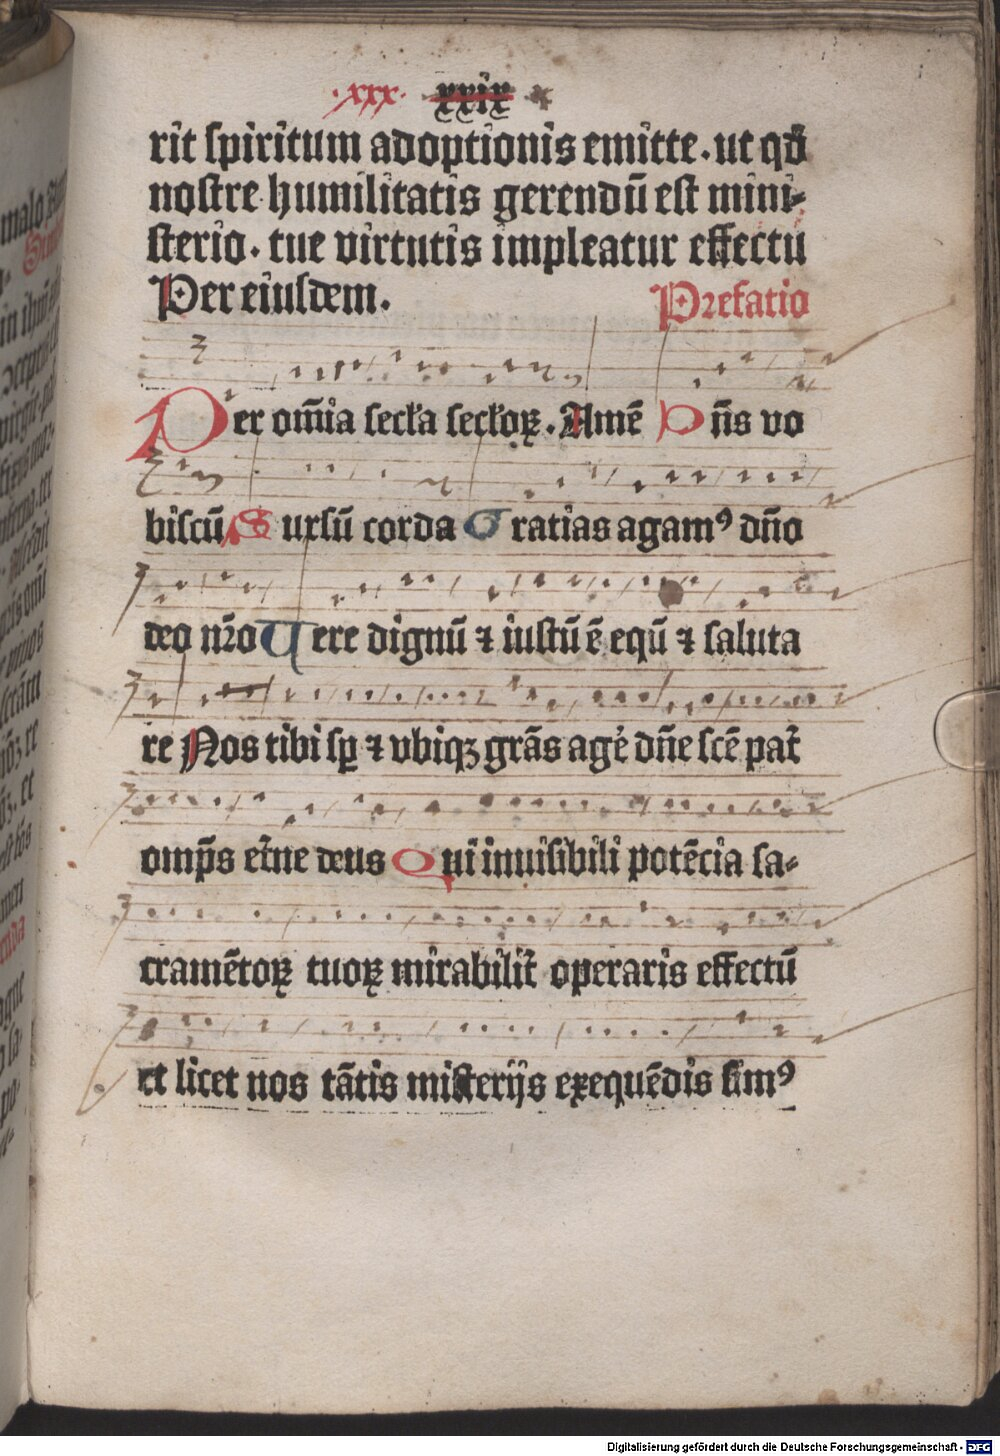 ·xxx· xxix
rit spiritum adoptionis emitte. ut qď
nostre humilitatis gerendū est mini⸗
sterio. tue virtutis impleatur effectū
Per eiusdem.
Prefatio
Per om̄ia secl'a secl'oꝝ. Amē Dn̄s vo
biscū Sursū corda Gratias agamꝰ dn̄o
deo nr̄o Vere dignū ⁊ iustū ē eqū ⁊ saluta
re Nos tibi sꝑ ⁊ vbiqꝫ grās agē dn̄e scē pat̄
omp̄s et̄ne deus Qui inuisibili potēcia sa⸗
cramētoꝝ tuoꝝ mirabilit̄ operaris effectū
et licet nos tātis misterijs exequēdis simꝰ
Digitalisierung gefördert durch die Deutsche Forschungsgemeinschaft - DFG